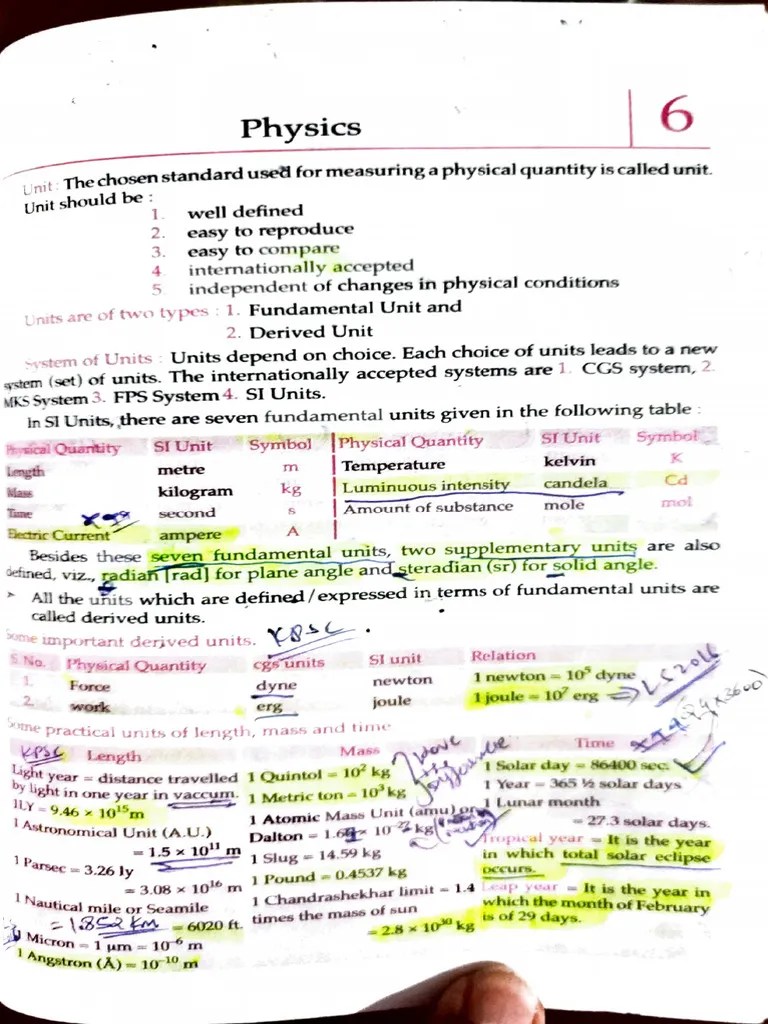 Physics
6
Unit : The chosen standard used for measuring a physical quantity is called unit.
Unit should be :
1. well defined
2. easy to reproduce
3. easy to compare
4. internationally accepted
5. independent of changes in physical conditions
Units are of two types : 1. Fundamental Unit and
2. Derived Unit
System of Units : Units depend on choice. Each choice of units leads to a new
system (set) of units. The internationally accepted systems are 1. CGS system, 2.
MKS System 3. FPS System 4. SI Units.
In SI Units, there are seven fundamental units given in the following table :
Physical Quantity SI Unit Symbol Physical Quantity SI Unit Symbol
Length metre m Temperature kelvin K
Mass kilogram kg Luminous intensity candela Cd
Time second s Amount of substance mole mol
Electric Current ampere A
Besides these seven fundamental units, two supplementary units are also
defined, viz., radian [rad] for plane angle and steradian (sr) for solid angle.
➤ All the units which are defined/expressed in terms of fundamental units are
called derived units.
Some important derived units. KPSC
S.No. Physical Quantity cgs units SI unit Relation
1. Force dyne newton 1 newton = 10⁵ dyne
2. work erg joule 1 joule = 10⁷ erg
Some practical units of length, mass and time
KPSC Length Mass Time
Light year = distance travelled
by light in one year in vaccum.
1LY = 9.46 × 10¹⁵m
1 Astronomical Unit (A.U.)
= 1.5 × 10¹¹ m
1 Parsec = 3.26 ly
= 3.08 × 10¹⁶ m
1 Nautical mile or Seamile
= 1.852 KM = 6020 ft.
1 Micron = 1 µm = 10⁻⁶ m
1 Angstron (Å) = 10⁻¹⁰ m
1 Quintol = 10² kg
1 Metric ton = 10³ kg
1 Atomic Mass Unit (amu) or
Dalton = kg
1 Slug = 14.59 kg
1 Pound = 0.4537 kg
1 Chandrashekhar limit = 1.4
times the mass of sun
= 2.8 × 10³⁰ kg
1 Solar day = 86400 sec.
1 Year = 365 ½ solar days
1 Lunar month
= 27.3 solar days.
Tropical year = It is the year
in which total solar eclipse
occurs.
Leap year = It is the year in
which the month of February
is of 29 days.